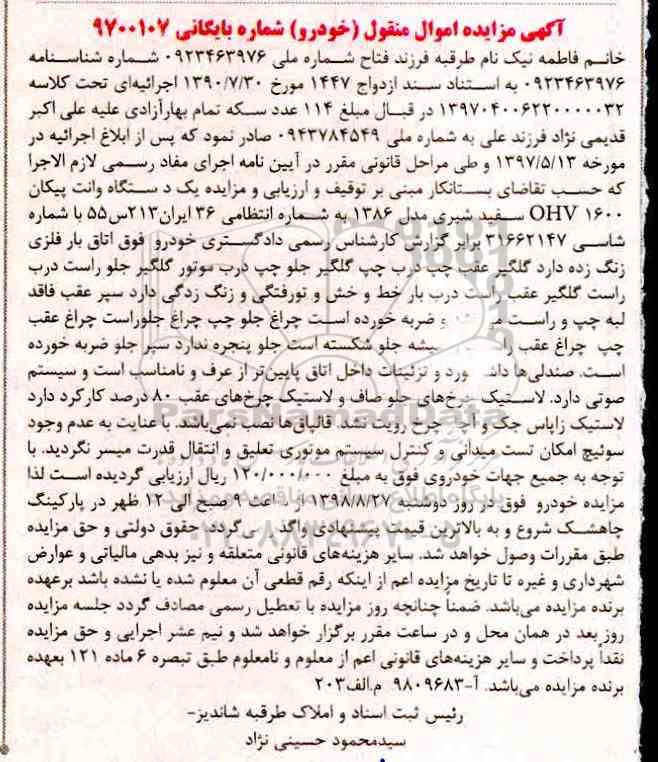 آگهی مزایده اموال منقول (خودرو) شماره بایگانی ۹۷۰۰۱۰۷
خانم فاطمه نیک نام طرقبه فرزند فتاح شماره ملی ۰۹۲۳۴۶۳۹۷۶ شماره شناسنامه
۰۹۲۳۴۶۳۹۷۶ به استناد سند ازدواج ۱۴۴۷ مورخ ۱۳۹۰/۷/۳۰ اجرائیه‌ای تحت کلاسه
۱۳۹۷۰۴۰۰۶۲۲۰۰۰۰۰۳۲ در قبال مبلغ ۱۱۴ عدد سکه تمام بهارآزادی علیه علی اکبر
قدیمی نژاد فرزند علی به شماره ملی ۰۹۴۳۷۸۴۵۴۹ صادر نمود که پس از ابلاغ اجرائیه در
مورخه ۱۳۹۷/۵/۱۳ و طی مراحل قانونی مقرر در آیین نامه اجرای مفاد رسمی لازم الاجرا
که حسب تقاضای بستانکار مبنی بر توقیف و ارزیابی و مزایده یک د ستگاه وانت پیکان
۱۶۰۰ OHV سفید شیری مدل ۱۳۸۶ به شماره انتظامی ۳۶ ایران۲۱۳س۵۵ با شماره
شاسی ۳۱۶۶۲۱۴۷ برابر گزارش کارشناس رسمی دادگستری خودرو فوق اتاق بار فلزی
زنگ زده دارد گلگیر عقب چپ درب چپ گلگیر جلو چپ درب موتور گلگیر جلو راست درب
راست گلگیر عقب راست درب بار خط و خش و تورفتگی و زنگ زدگی دارد سپر عقب فاقد
لبه چپ و راست و ضربه خورده است چراغ جلو چپ چراغ جلوراست چراغ عقب
چپ چراغ عقب شیشه جلو شکسته است جلو پنجره ندارد سپر جلو ضربه خورده
است. صندلی‌ها و تزئینات داخل اتاق پایین‌تر از عرف و نامناسب است و سیستم
صوتی دارد. لاستیک چرخ‌های جلو صاف و لاستیک چرخ‌های عقب ۸۰ درصد کارکرد دارد
لاستیک زاپاس جک و آچار چرخ رویت نشد. قالپاق‌ها نصب نمی‌باشد. با عنایت به عدم وجود
سوئیچ امکان تست میدانی و کنترل سیستم موتوری تعلیق و انتقال قدرت میسر نگردید. با
توجه به جمیع جهات خودروی فوق به مبلغ ۱۲۰/۰۰۰/۰۰۰ ریال ارزیابی گردیده است لذا
مزایده خودرو فوق در روز دوشنبه ۱۳۹۸/۸/۲۷ از ساعت ۹ صبح الی ۱۲ ظهر در پارکینگ
چاهشک شروع و به بالاترین قیمت پیشنهادی واگذار می‌گردد. حقوق دولتی و حق مزایده
طبق مقررات وصول خواهد شد. سایر هزینه‌های قانونی متعلقه و نیز بدهی مالیاتی و عوارض
شهرداری و غیره تا تاریخ مزایده اعم از اینکه رقم قطعی آن معلوم شده یا نشده باشد برعهده
برنده مزایده می‌باشد. ضمناً چنانچه روز مزایده با تعطیل رسمی مصادف گردد جلسه مزایده
روز بعد در همان محل و در ساعت مقرر برگزار خواهد شد و نیم عشر اجرایی و حق مزایده
نقداً پرداخت و سایر هزینه‌های قانونی اعم از معلوم و نامعلوم طبق تبصره ۶ ماده ۱۲۱ بعهده
برنده مزایده می‌باشد. آ-۹۸۰۹۶۸۳ م.الف۲۰۳
رئیس ثبت اسناد و املاک طرقبه شاندیز-
سیدمحمود حسینی نژاد
ParsNamadData